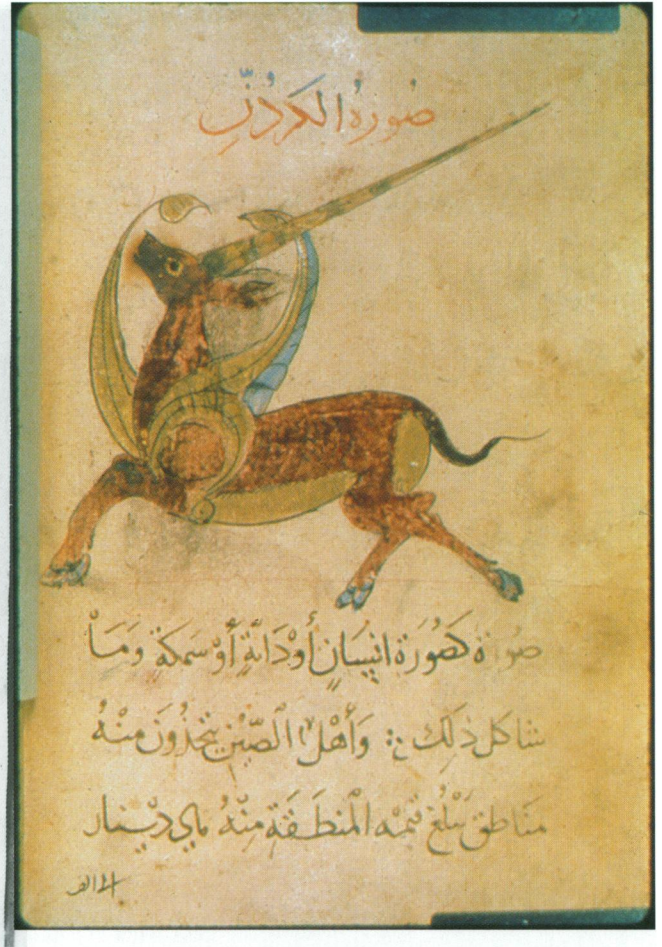 صُورةُ الكَرْكَدَّنِ
صُورَة كَصُورَةِ انِسَانٍ أَوْ دَابَّةٍ أَوْ سَمَكَةٍ وَمَا
شاكل ذلِكَ وَأَهْلُ الصّيْنِ يَتَّخِذُونَ مِنْهُ
مَنَاطق تَبْلُغ قيمْه المْنطَقَةِ مِنْهُ مايَ دِيْنار